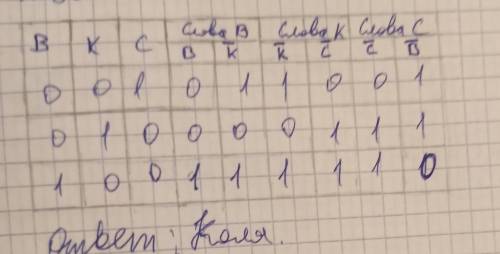 В К С Слова В Слова К Слова С
В К̅ К̅ С̅ С̅ В̅
0 0 1 0 1 1 0 0 1
0 1 0 0 0 0 1 1 1
1 0 0 1 1 1 1 1 0
Ответ: Коля.